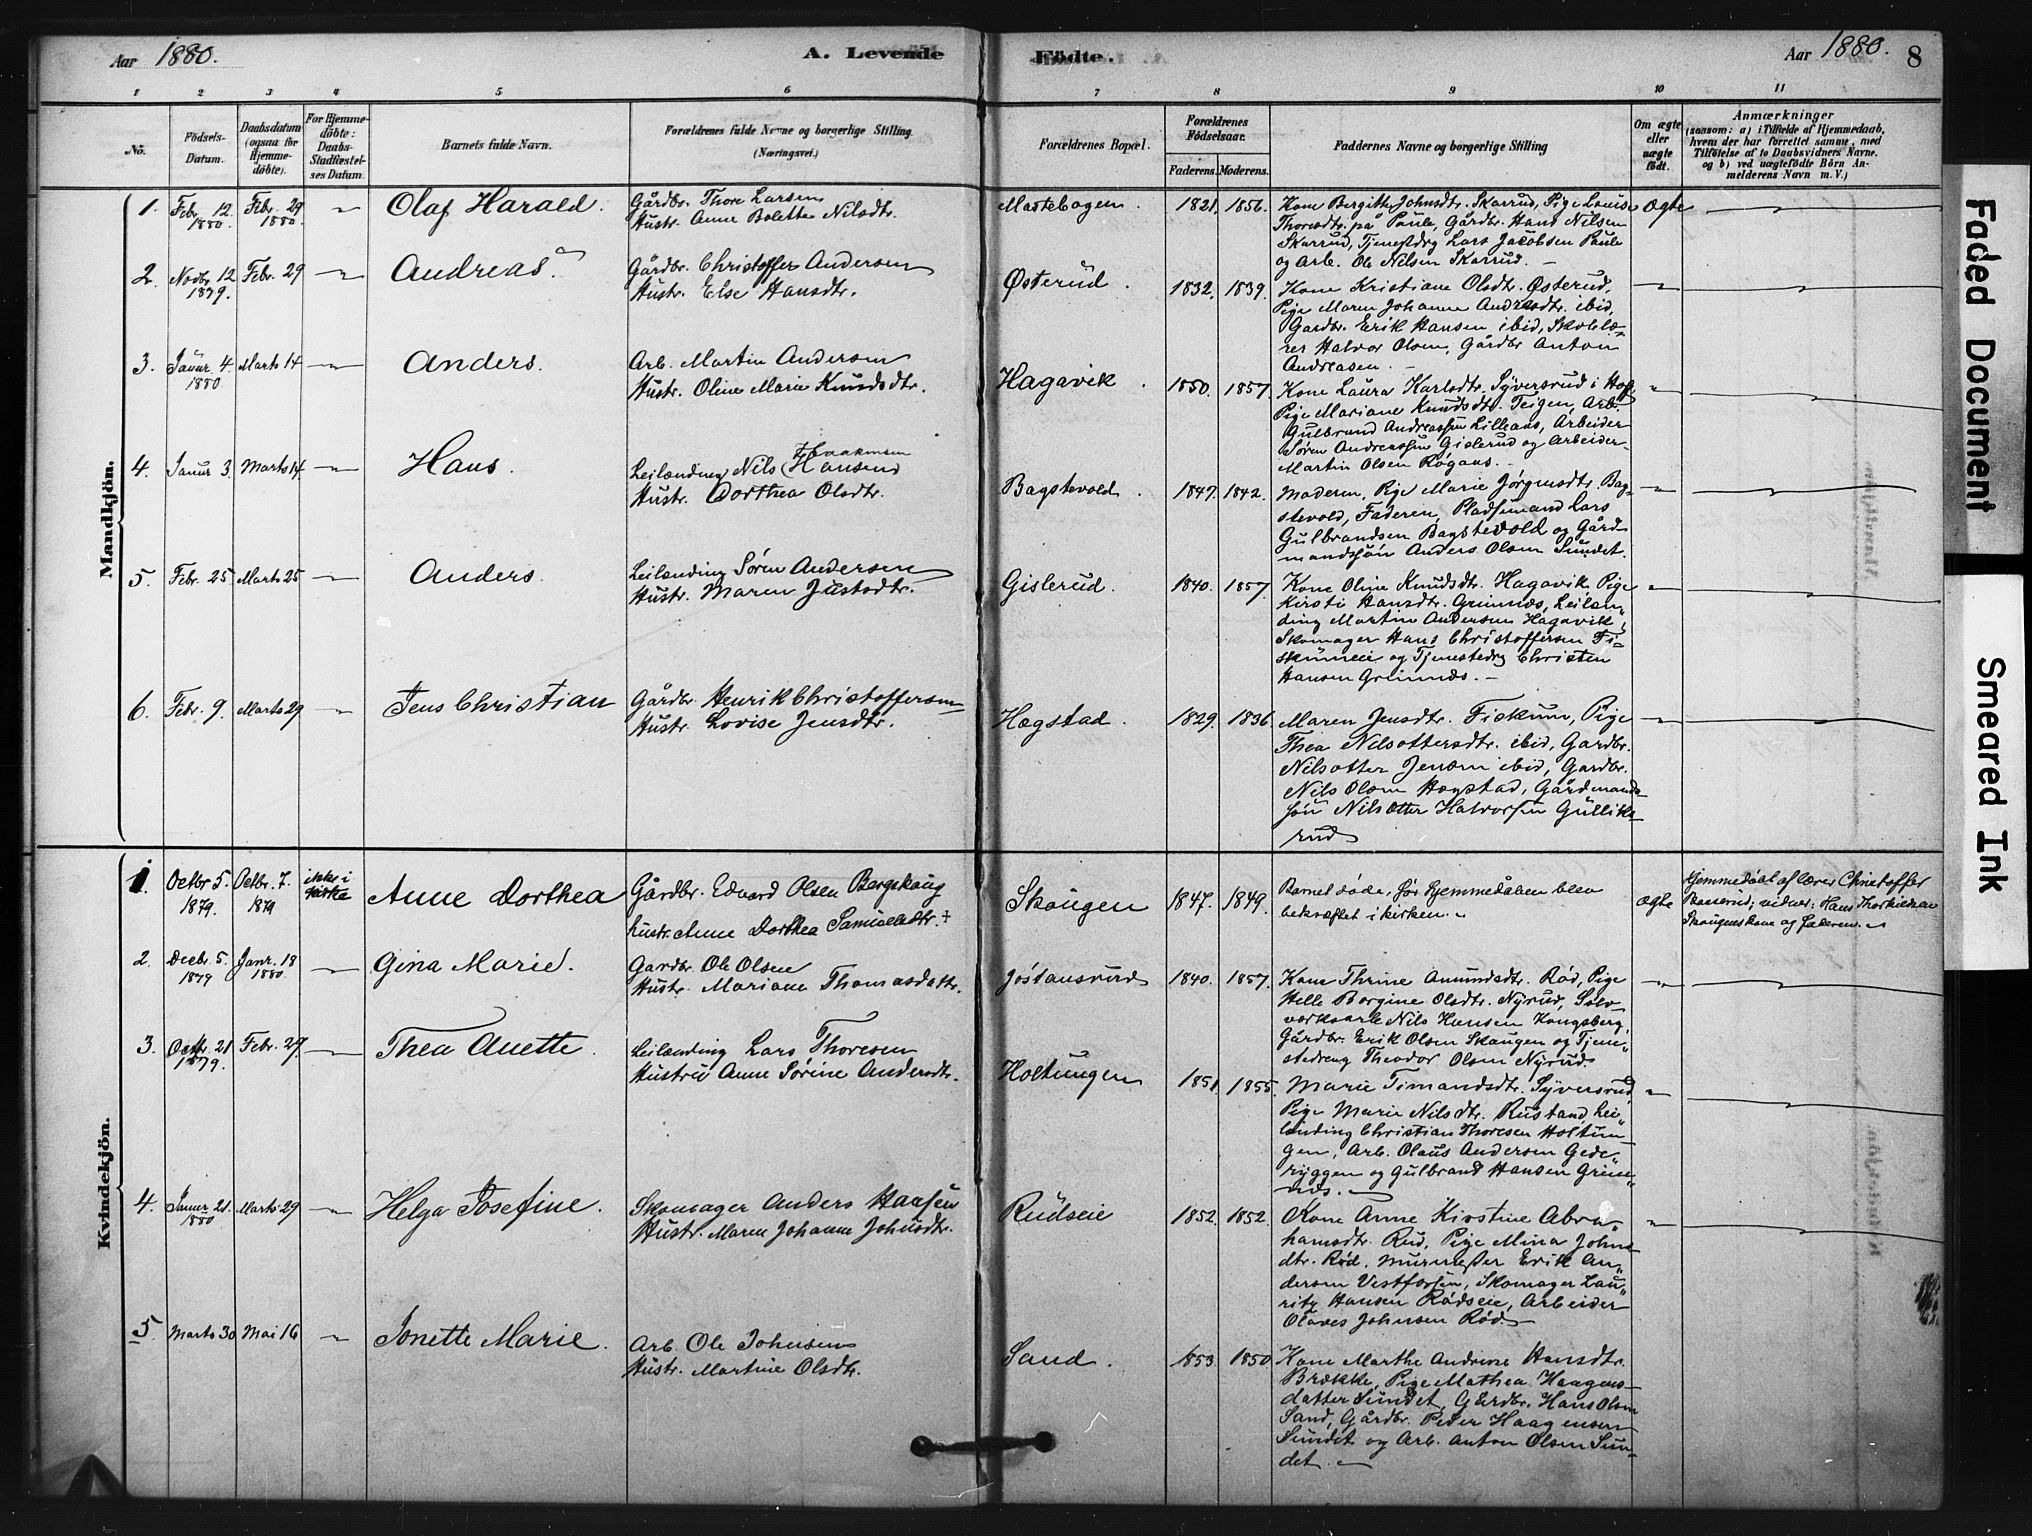 Aar 1880. A. Levende Födte. Aar 1880. 8
1 2 3 4 5 6 7 8 9 10 11
No. Födsels-Datum. Daabsdatum (ogsaa för Hjemme-döbte). For Hjemme-döbte: Daabs-Stadfæstel-ses Datum. Barnets fulde Navn. Forældrenes fulde Navne og borgerlige Stilling. (Næringsvei.) Forældrenes Bopæl. Forældrenes Födselsaar. Faderens. Moderens. Faddernes Navne og borgerlige Stilling Om ægte eller uægte födt. Anmærkninger (saasom: a) i Tilfælde af Hjemmedaab, hvem der har forrettet samme, med Tilföielse af to Daabsvidners Navne, og b) ved uægtefödte Börn An-melderens Navn m. V.)
Mandkjön.
1. Febr. 12 1880. Febr. 29 1880. Olaf Harald. Gårdbr. Thore Larsen
Hustr. Anne Bolette Nilsdtr. Mastebogen. 1821. 1856. Kone Bergitte Johnsdtr. Skarrud, Pige Louise Ægte
Thoresdtr. på Paule, Gårdbr. Hans Nilsen
Skarrud, Tjenestdrg Lars Jacobsen Paule
og Arb. Ole Nilsen Skarrud.
2. Novbr. 12 1879. Febr. 29 Andreas. Gårdbr. Christoffer Andersen
Hustr. Else Hansdtr. Østerud. 1832. 1839. Kone Kristiane Olsdtr. Østerud,
Pige Maren Johanne Andreasdtr. ibid,
Gardbr. Erik Hansen ibid, Skolelæ-
rer Halvor Olsen, Gårdbr Anton
Andreasen.
3. Januar. 4 1880 Marts 14 Anders. Arb. Martin Andersen
Hustr. Oline Marie Knudsdtr. Hagavik. 1850. 1857. Kone Laura Karlsdtr. Syversrud i Hof,
Pige Mariane Knudsdtr. Teigen, Arb.
Gulbrand Andreassen Lilleaas, Arbeider
Søren Andreassen Gislerud og Arbeider
Martin Olsen Røgaas.
4. Januar 3 Marts 14. Hans. Haakensen
Leilænding Nils (Hansen)
Hustr. Dorthea Olsdtr. Bagstevold. 1847. 1842. Moderen, Pige Marie Jørgensdtr. Bag-
stevold, Faderen, Pladsemand Lars
Gulbrandsen Bagstevold og Gård
mandssøn Anders Olsen Sundet.
5. Febr. 25 Marts 25 Anders. Leilænding Søren Andersen
Hustr. Maren Justsdtr. Gislerud. 1840. 1857. Kone Oline Knudsdtr. Hagavik, Pige
Kirsti Hansdtr. Grimnæs, Leilæn-
ding Martin Andersen Hagavik,
Skomager Hans Christoffersen Fi-
skumeie og Tjenestedrg Christen
Hansen Grimnæs.
6. Febr. 9. Marts 29 Jens Christian Gårdbr. Henrik Christoffersen
Hustr. Lovise Jensdtr. Hægstad. 1829. 1836. Maren Jensdtr. Fiskum, Pige
Thea Nilsottersdtr. ibid, Gardbr.
Nilsotter Jensen ibid, Gardbr.
Nils Olsen Hægstad, Gårdmands-
søn Nilsotter Halvorsen Gulliks-
rud
Kvindekjön.
1. Octbr 5. 1879. Octbr. 7. 1879 ikke i kirke Anne Dorthea Gårdbr. Edvard Olsen Bergskaug
hustr. Anne Dorthea Samuelsdtr. + Skougen 1847. 1849. Barnet døde, før hjemmedåben blev
bekræftet i kirken. Ægte Hjemmedøbt af lærer Christoffer
Skarrud; vidner: Hans Thorkildsen
Skougens kone og faderen.
2. Decbr. 5. 1879 Janr. 18 1880. Gina Marie. Gardbr. Ole Olsen
Hustr. Mariane Thomasdattr. Jøstansrud 1840. 1857. Kone Thrine Amundsdtr. Rød, Pige
Helle Borgine Olsdtr. Nyrud, Sølv-
værksarb Nils Hansen Kongsberg,
Gårdbr. Erik Olsen Skougen og Tjene-
stedreng Theodor Olsen Nyrud.
3. Octbr. 21 1879. Febr. 29 Thea Anette. Leilænding Lars Thoresen
Hustru Anne Sørine Andersdtr. Holtungen 1851. 1855. Marie Timandsdtr. Syversrud,
Pige Marie Nilsdtr. Rustand, Lei-
lænding Christian Thoresen Holtun-
gen, Arb. Olaus Andersen Gede-
ryggen og Gulbrand Hansen Grim-
næs.
4. Januar 21. 1880 Marts 29 Helga Josefine. Skomager Anders Hansen
Hustr. Maren Johanne Johnsdtr. Rudseie 1852. 1852. Kone Anne Kirstine Abra-
hamsdtr. Rud, Pige Mina Johns-
dtr. Rød. Murmester Erik An-
dersen Vestfossen, Skomager Lau-
ritz Hansen Rødseie, Arbeider
Olaves Johnsen Rød.
5. Marts 30 Mai 16 Jonette Marie. Arb. Ole Johnsen
Hustr. Martine Olsdtr. Sand. 1853. 1850. Kone Marthe Andrine Hansdtr.
Brække, Pige Mathea Haagens-
datter Sundet, Gårdbr. Hans Olsen
Sand, Gårdbr. Peder Haagensen
Sundet og Arb. Anton Olsen Sun-
det.
Faded Document
Smeared Ink